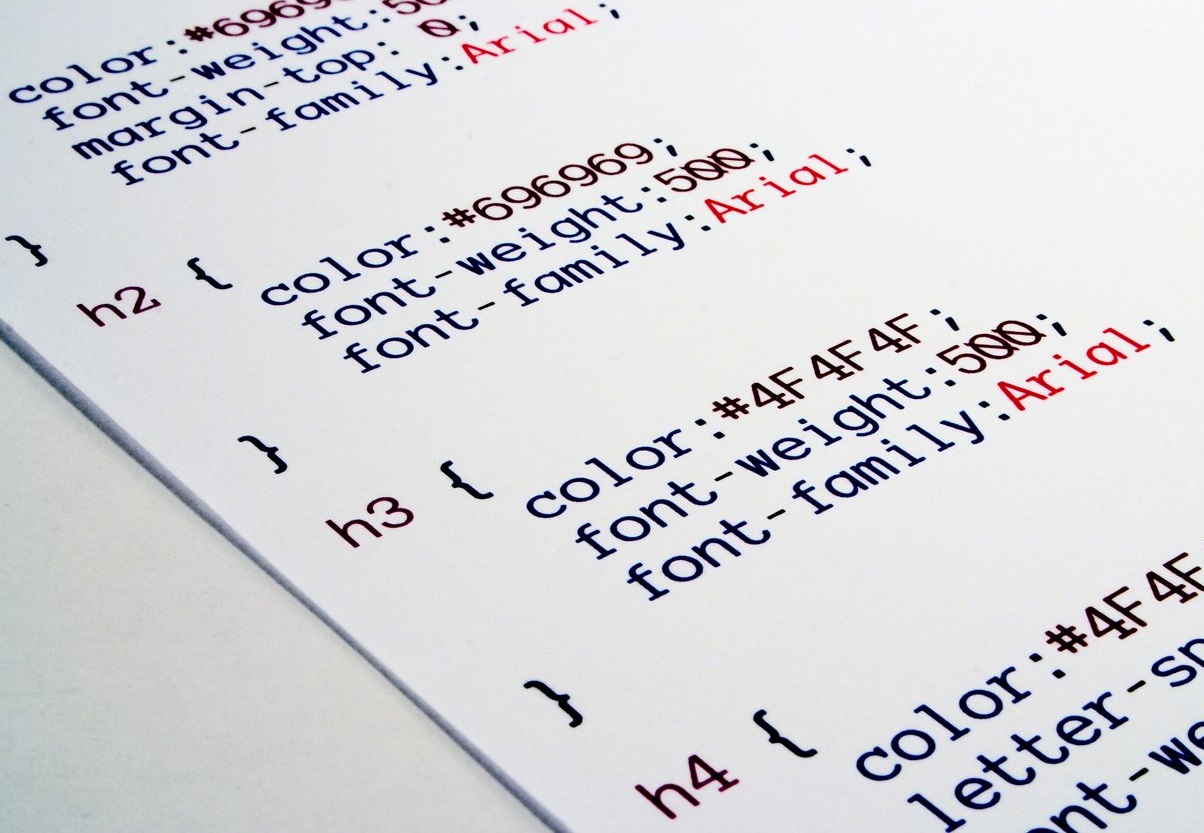 color:#6969
font-weight:50
margin-top: 0;
font-family:Arial;
}
h2 {
color:#696969;
font-weight:500;
font-family:Arial;
}
h3 {
color:#4F4F4F;
font-weight:500;
font-family:Arial;
}
h4 {
color:#4F4F
letter-sp
font-we